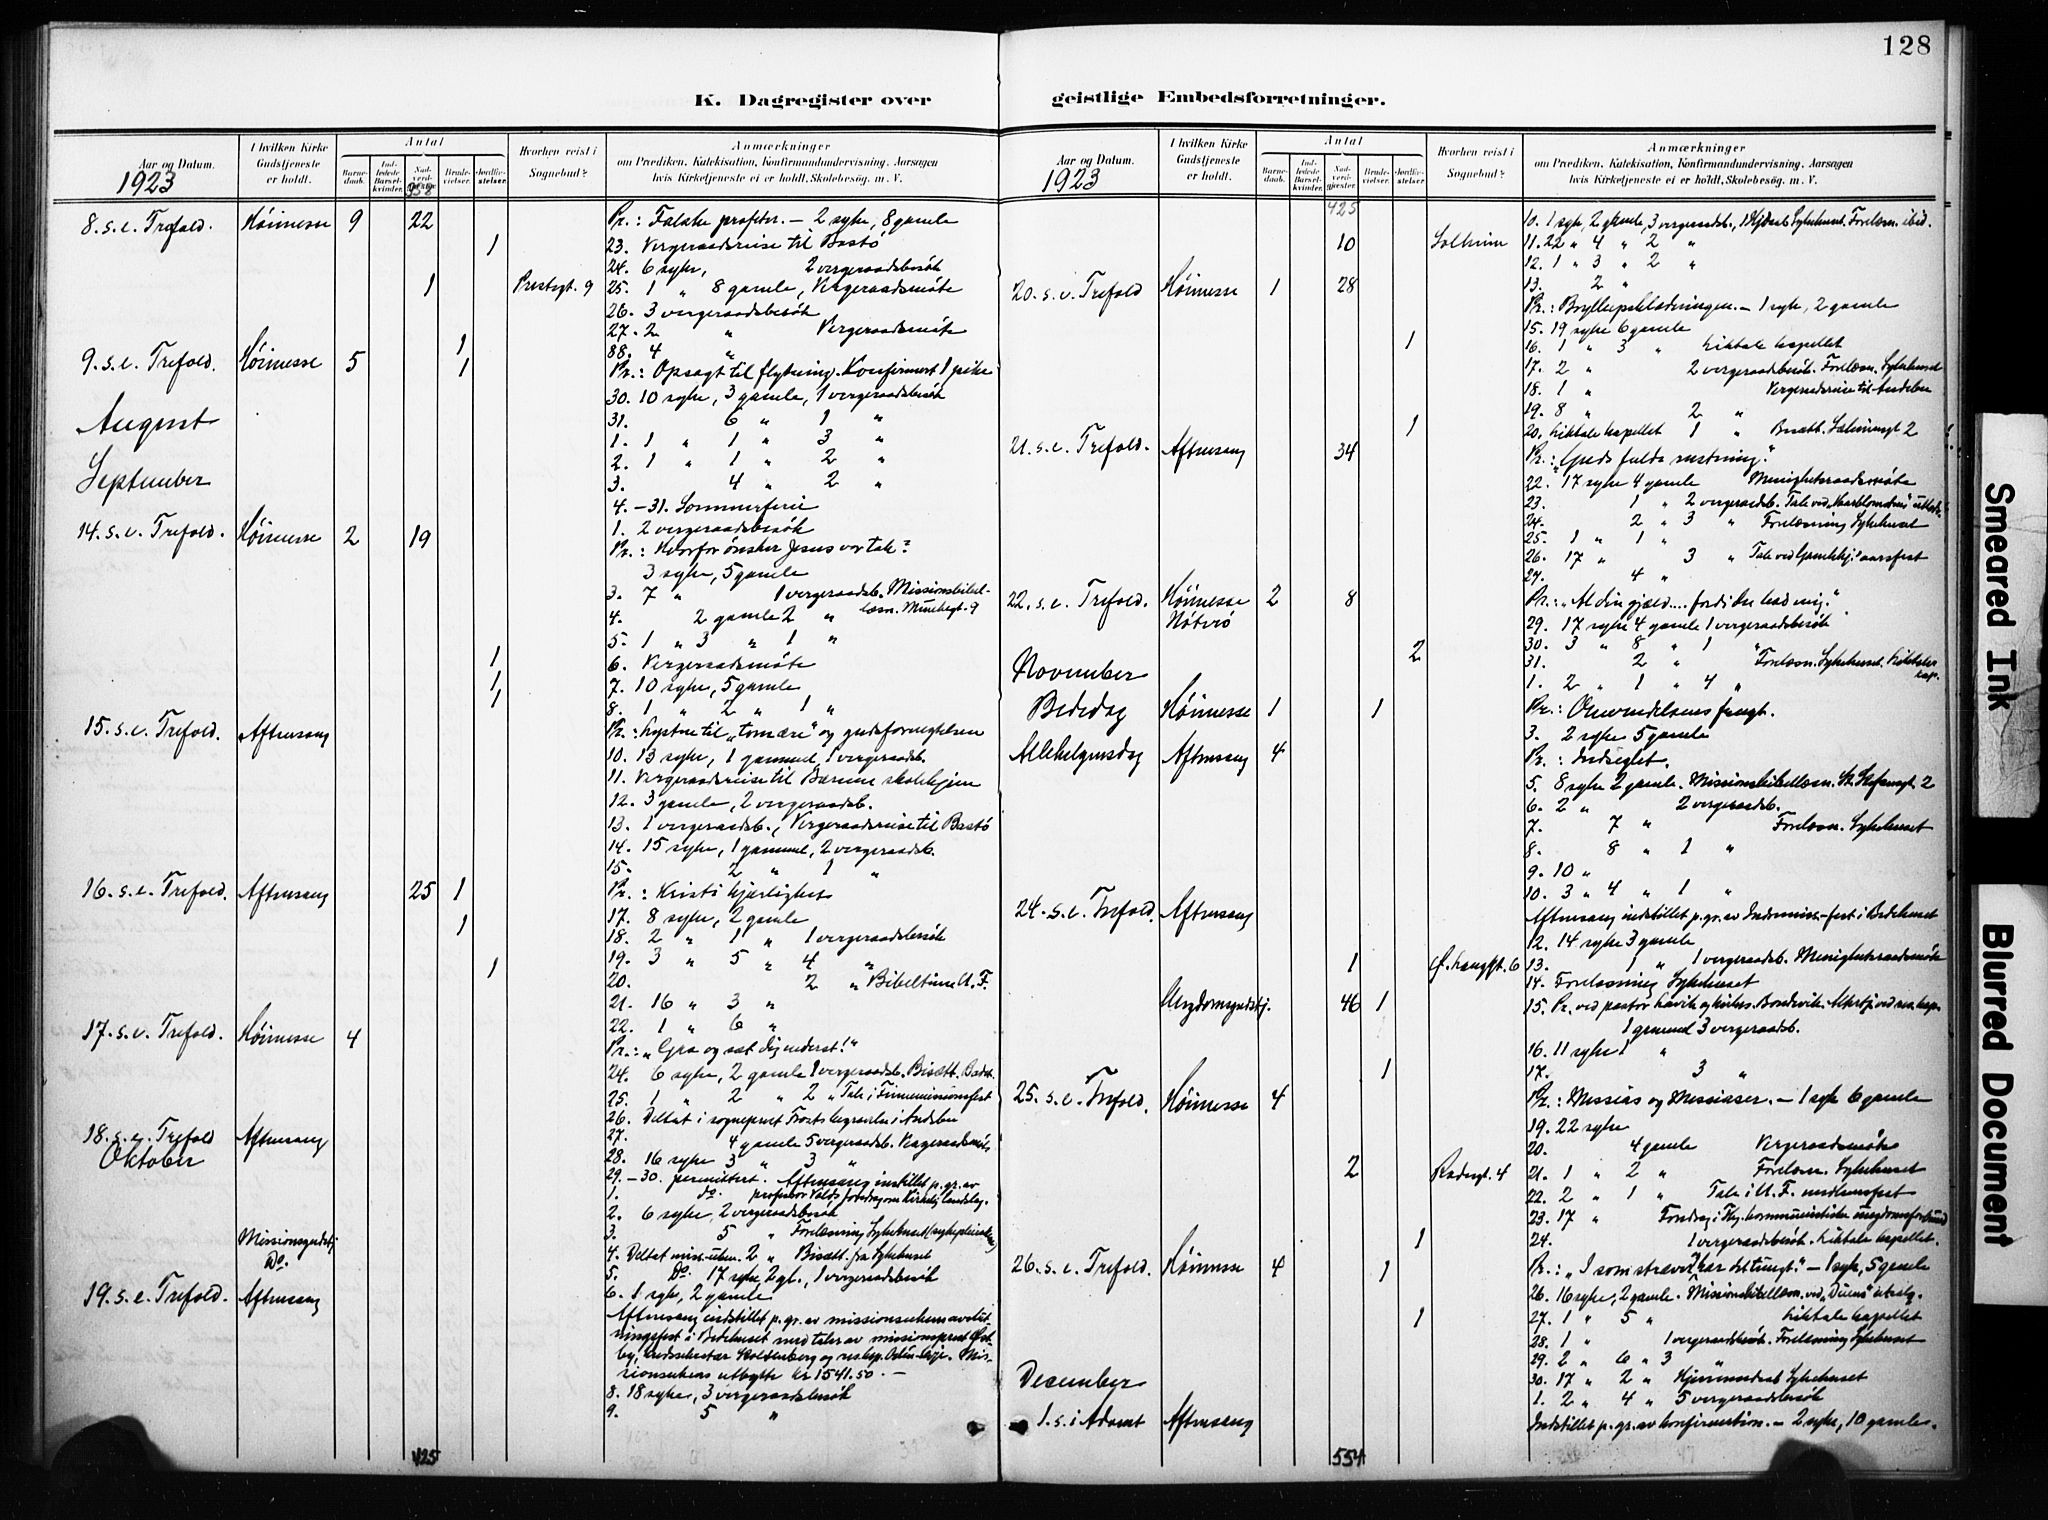 128
K. Dagregister over geistlige Embedsforretninger.
Aar og Datum.
1923
I hvilken Kirke Gudstjeneste er holdt.
Antal
Barne-daab.
Ind-ledede Barsel-kvinder.
Nad-verd-gjester.
Brude-vielser.
Jordfæ-stelser.
Hvorhen reist i Sognebud?
Anmærkninger
om Prædiken, Katekisation, Konfirmandundervisning, Aarsagen
hvis Kirketjeneste ei er holdt, Skolebesøg. m. V.
358
8. s. e. Trefold. Høimesse 9 22 Pr.: Falske profeter. – 2 syke, 8 gamle
1 23. Vergeraadsreise til Bastö
24. 6 syke, 2 vergeraadsbesök
1 Prestegt. 9 25. 1 " 8 gamle, Vergeraadsmöte
26. 3 vergeraadsbesök
27. 2 " Vergeraadsmöte
1 88. 4 "
9. s. e. Trefold. Høimesse 5 1 Pr.: Opsagt til flytning. Konfirmert 1 pike
30. 10 syke, 3 gamle, 1 vergeraadsbesök
August 31. 6 " 1 "
1. 1 " 1 " 3 "
2. 1 " 1 " 2 "
September 3. 4 " 2 "
4. – 31. Sommerferie
1. 2 vergeraadsbesök
14. s. e. Trefold. Høimesse 2 19 Pr.: Hvorfor ønsker Jesus vor tak?
3 syke, 5 gamle
3. 7 " 1 vergeraadsb. Missionsbibel-
læsn. Munkegt. 9
4. 2 gamle 2 "
5. 1 " 3 " 1 "
1 6. Vergeraadsmöte
1 7. 10 syke, 5 gamle
1 8. 1 " 2 " 1 "
15. s. e. Trefold. Aftensang Pr.: Lystne til „tomære" og gudsfornegtelsen
10. 13 syke, 1 gammel, 1 vergeraadsb.
11. Vergeraadsreise til Bærum skolehjem
12. 3 gamle, 2 vergeraadsb.
13. 1 vergeraadsb., Vergeraadsreise til Bastö
14. 15 syke, 1 gammel, 2 vergeraadsb.
15. 2 " 1 "
16. s. e. Trefold. Aftensang 25 1 Pr.: Kristi kjærlighet
1 17. 8 syke, 2 gamle
18. 2 " 1 " 1 vergeraadsbesök
1 19. 3 " 5 " 4 "
20. 2 " Bibeltime U. F.
21. 16 " 3 "
22. 1 " 6 "
17. s. e. Trefold. Høimesse 4 Pr.: „Gaa og sæt dig nederst!"
24. 6 syke, 2 gamle 1 vergeraadsb. Bisætt.
25. 1 " 2 " 2 " Tale i Finnemissionsfest
26. Deltat i sogneprest begravelse i Andebu
18. s. e. Trefold Aftensang 27. 4 gamle 5 vergeraadsb. Vergeraadsmöte
Oktober 28. 16 syke 3 " 3 "
29. – 30. permittert. Aftensang instillet p. gr. av
1. do. professor Volds foredrag om Kirkelig landslag.
2. 6 syke, 2 vergeraadsbesök
3. 5 " Forelæsning Sykehuset
Missionsgudstj. 4. Deltat miss.-uken. 2 " Bisætt. fra Sykehuset
Do. 5. Do. 17 syke, 2 gl., 1 vergeraadsbesök
19. s. e. Trefold. Aftensang 6. 1 syk, 2 gamle
Aftensang indstillet p. gr. av missionsukens avslut-
ningsfest i Bedehuset med taler av missionsprest Øst-
by, kredssekretær Stoltenberg og res. kap. Mis-
sionsukens utbytte kr 1541.50. –
8. 18 syke, 3 vergeraadsbesök
9. 5 "
425
Aar og Datum.
1923
I hvilken Kirke Gudstjeneste er holdt.
Antal
Barne-daab.
Ind-ledede Barsel-kvinder.
Nad-verd-gjester.
Brude-vielser.
Jordfæ-stelser.
Hvorhen reist i Sognebud?
Anmærkninger
om Prædiken, Katekisation, Konfirmandundervisning, Aarsagen
hvis Kirketjeneste ei er holdt, Skolebesøg. m. V.
425
10. 1 syk, 2 gamle, 3 vergeraadsb., Sykehuset. Forelæsn. ibid.
10 Solheim 11. 22 " 4 " 2 "
12. 1 " 3 " 2 "
13. 2 "
20. s. e. Trefold Høimesse 1 28 Pr.: Bryllupsklædningen. – 1 syk, 2 gamle
15. 19 syke 6 gamle
1 16. 1 " 3 " Liktale kapellet
17. 2 " 2 vergeraadsbesök. Forelæsn. Sykehuset
18. 1 " Vergeraadsreise til Andebu
19. 8 " 2 "
1 20. Liktale kapellet 1 " Bisætt. 2
21. s. e. Trefold. Aftensang 34 Pr.: „Guds fulde rustning."
22. 17 syke 4 gamle Menighetsraadsmöte
23. 1 " 2 vergeraadsb. Tale ved
24. 2 " 3 " Forelæsning Sykehuset
25. 1 " 1 "
26. 17 " 3 " Tale ved aarsfest
27. 4 "
22. s. e. Trefold. Høimesse 2 8 Pr.: „Al din gjæld.... fordi du bad mig."
Nötterö 29. 17 syke 4 gamle 1 vergeraadsbesök
2 30. 3 " 8 " 1 "
November 31. 2 " Forelæsn. Sykehuset. Liktale kap.
1. 2 " 1 " 4 "
Bededag Høimesse 1 1 Pr.: Omvendelsens frugt.
3. 2 syke 5 gamle
Allehelgensdag Aftensang 4 Pr.: Indseglet.
5. 8 syke 2 gamle. Missionsbibellæsn. St. Olafsgt. 2
6. 2 " 2 vergeraadsb.
7. 7 " Forelæsn. Sykehuset
8. 8 " 1 "
9. 10 "
10. 3 " 4 " 1 "
24. s. e. Trefold. Aftensang Aftensang indstillet p. gr. av Indremiss.-fest i Bedehuset
12. 14 syke 3 gamle
1 Ø. Langgt. 6 13. 1 " 1 vergeraadsb. Menighetsraadsmöte
14. Forelæsning Sykehuset
Ungdomsgudstj. 46 1 15. Pr. ved pastor Bondevik. Altertj. ved res. kap.
1 gammel 3 vergeraadsb.
16. 11 syke 1 "
1 17. 3 "
25. s. e. Trefold. Høimesse 4 Pr.: Messias og Messiaser. – 1 syk 6 gamle
19. 22 syke
20. 4 gamle Vergeraadsmöte
2 Radergt. 4 21. 1 " 2 " Forelæsn. Sykehuset
22. 2 " 1 " Tale i U. F. medlemsfest
23. 17 " Foredrag i Tbg. kommunistiske ungdomsforbund
1 24. 1 vergeraadsbesök. Liktale kapellet.
26. s. e. Trefold. Høimesse 4 1 Pr.: „I som stræver og har det tungt." – 1 syk, 5 gamle
26. 16 syke, 2 gamle. Missionsbibellæsn. ved
1 27. 1 " 5 " Liktale kapellet
28. 1 " 1 vergeraadsbesök. Forelæsning Sykehuset
29. 2 " 6 " 3 "
December 30. 17 " 2 " Sykehuset
1. 2 " 4 " 5 vergeraadsbesök
1. s. i Advent Aftensang Indstillet p. gr. av konfirmation. – 2 syke, 10 gamle.
554
Smeared Ink
Blurred Document